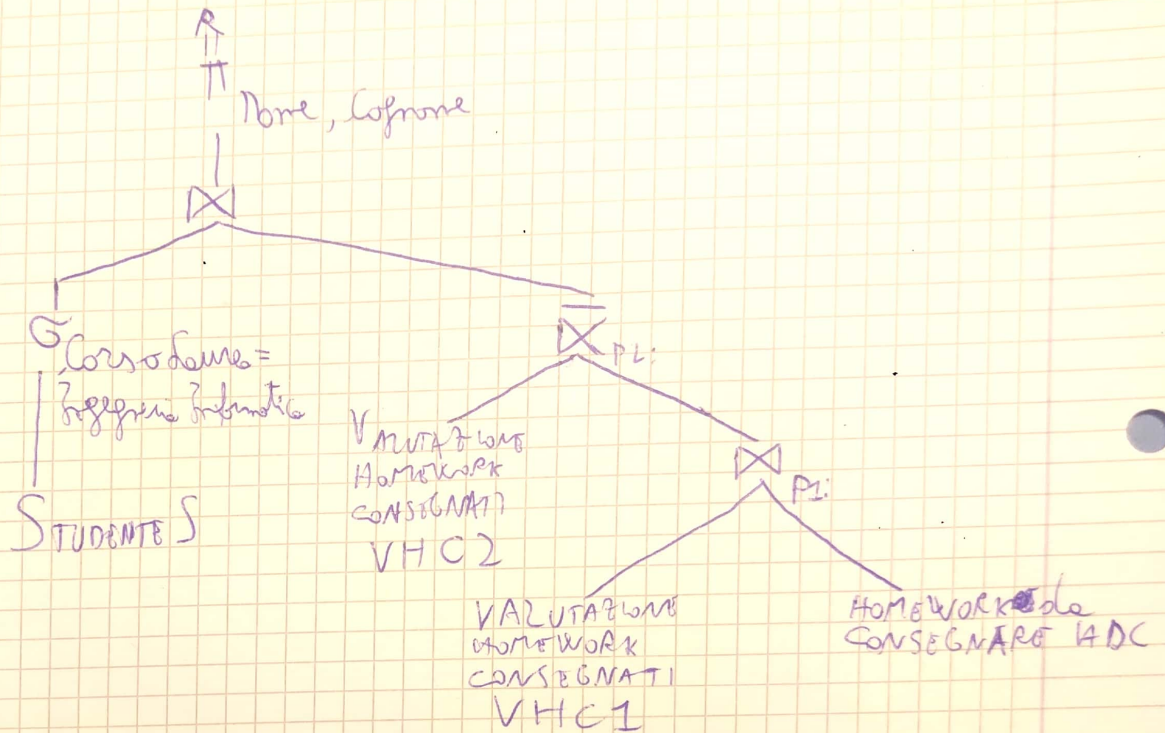 R
π
Nome, Cognome
⋈
σ CorsoLaurea =
Ingegneria Informatica
STUDENTE S
⋈ P2:
VALUTAZIONE
HOMEWORK
CONSEGNATI
VHC2
⋈ P1:
VALUTAZIONE
HOMEWORK
CONSEGNATI
VHC1
HOMEWORK da
CONSEGNARE HDC